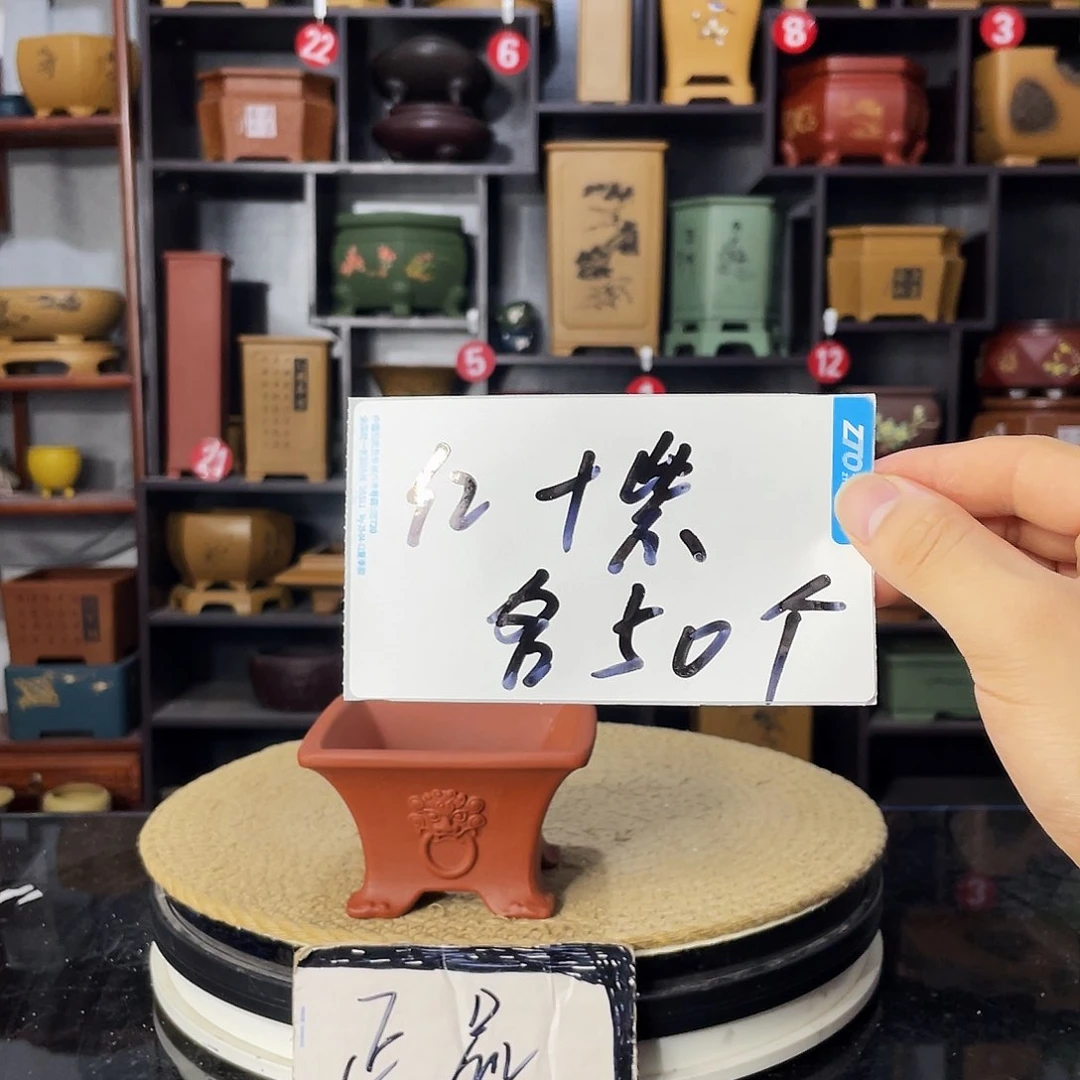 22
6
8
3
5
12
21
ZTO
红+紫
各50个
正品